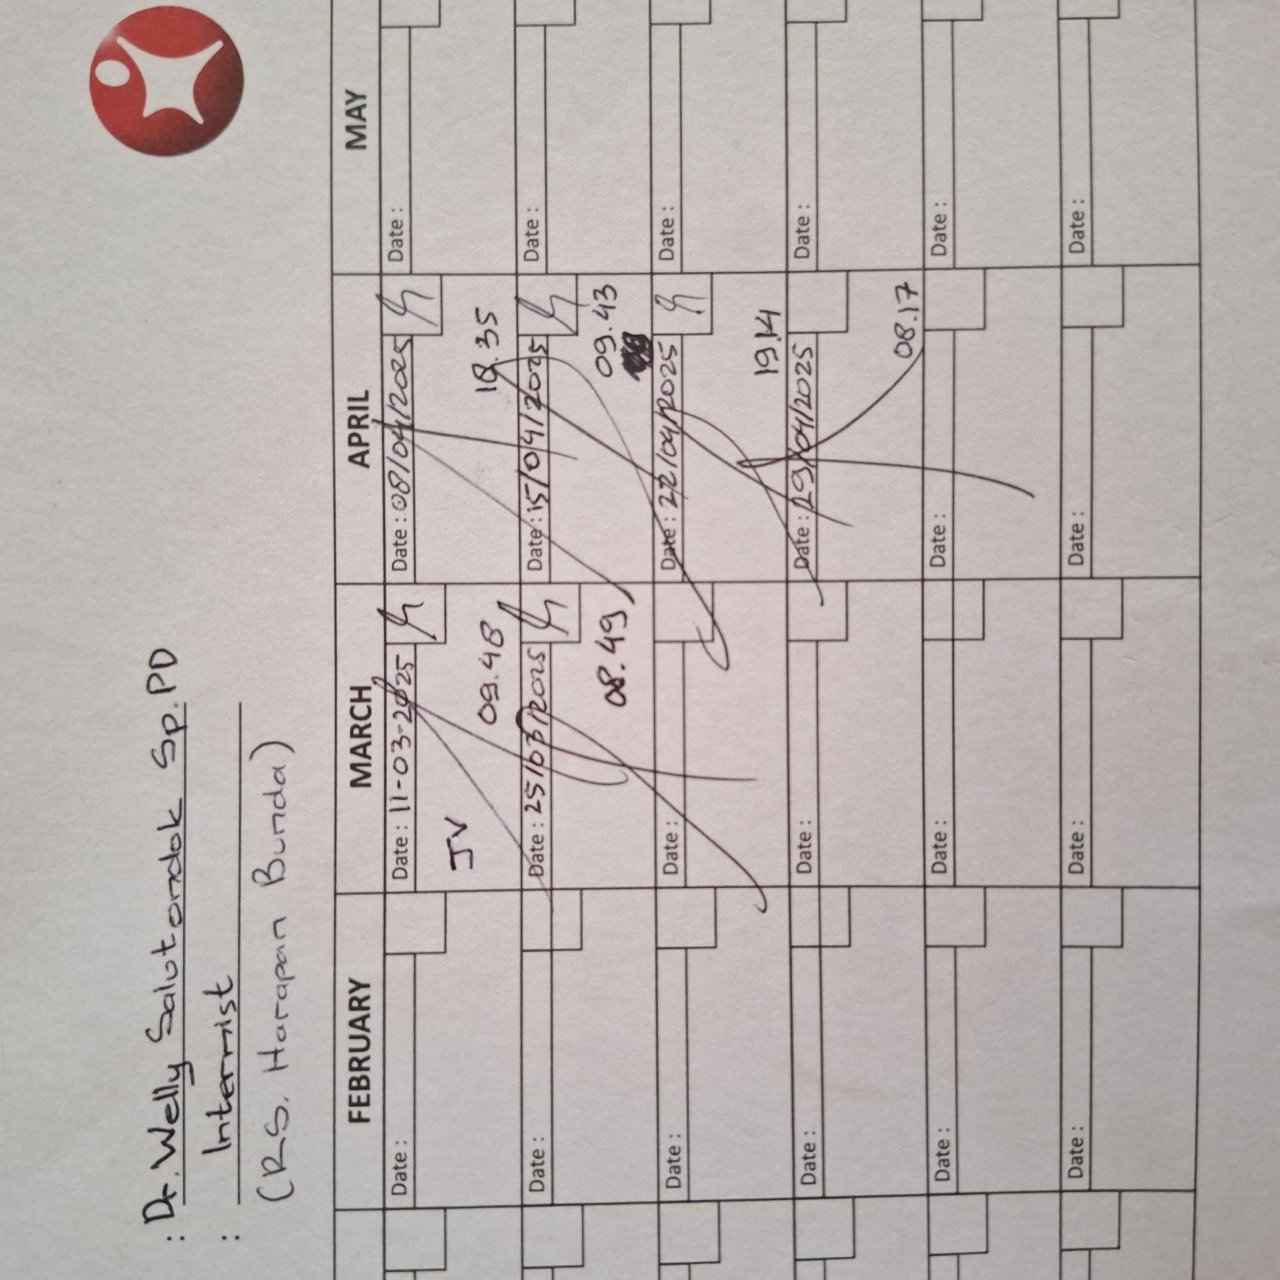 : Dr. Welly Salutondok Sp.PD
: Internist
(RS. Harapan Bunda)
FEBRUARY MARCH APRIL MAY
Date : Date : 11-03-2025 Date : 08/04/2025 Date :
JV 09.48 18.35
Date : Date : 25/03/2025 Date : 15/04/2025 Date :
08.49 09.43
Date : Date : Date : 22/04/2025 Date :
19.14
Date : Date : Date : 29/04/2025 Date :
08.17
Date : Date : Date : Date :
Date : Date : Date : Date :